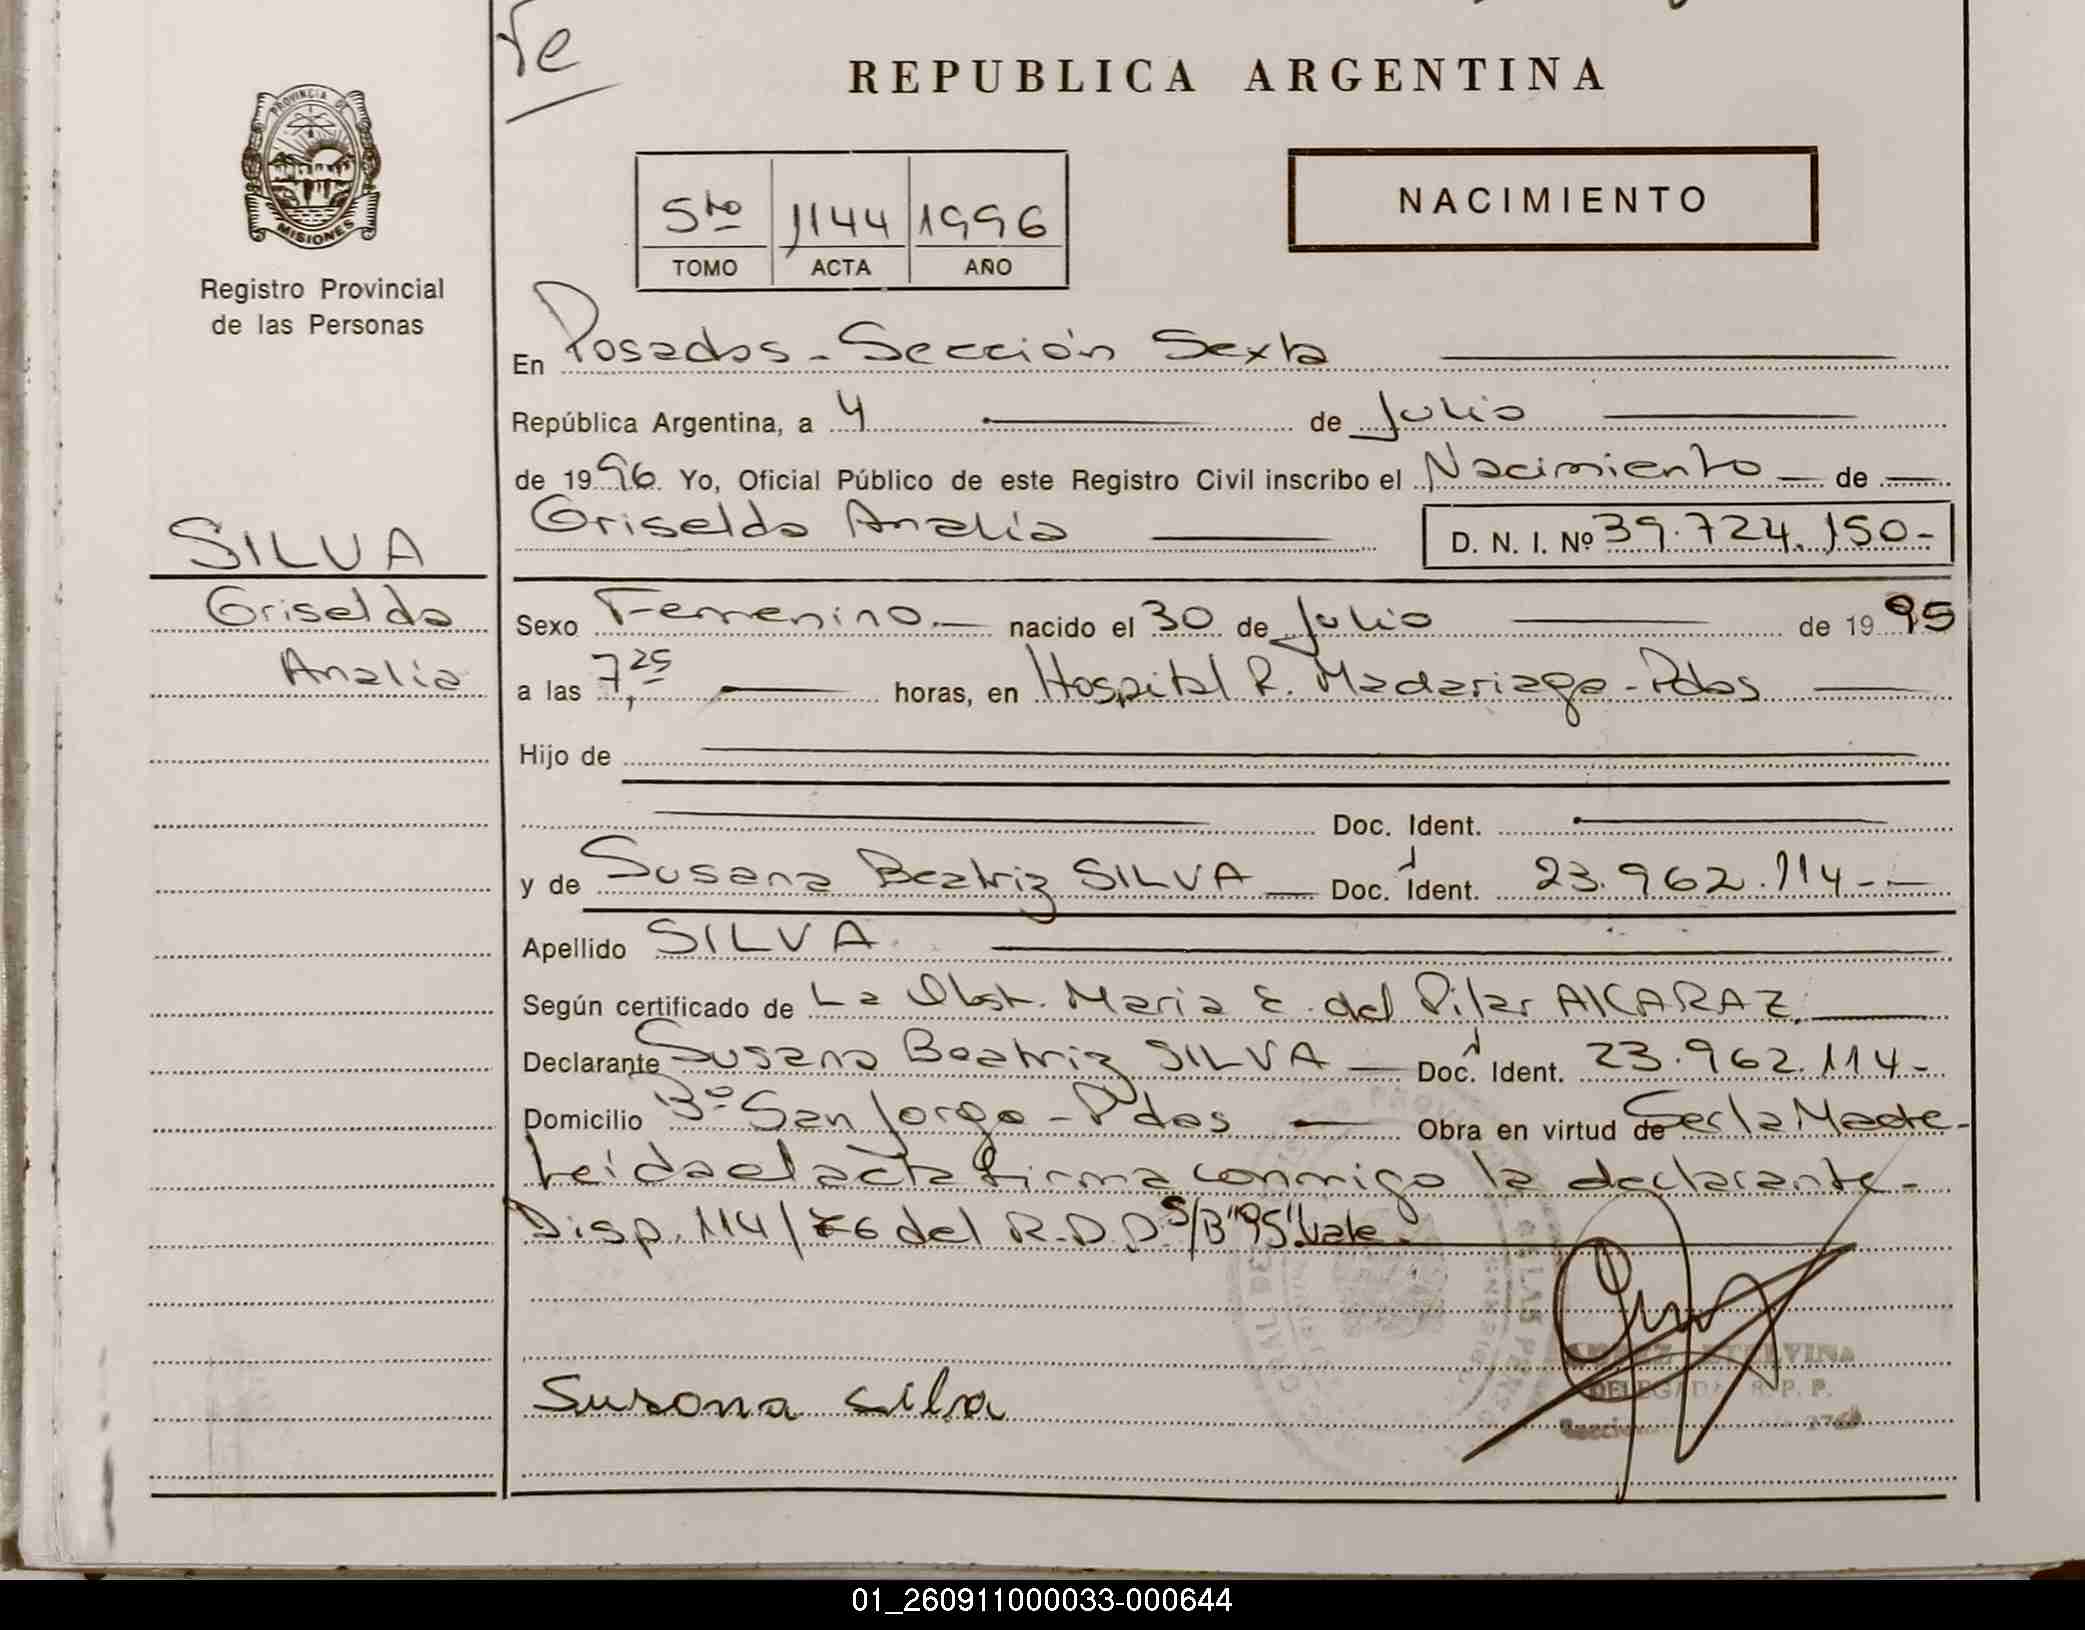 REPUBLICA ARGENTINA
PROVINCIA DE
MISIONES
Registro Provincial
de las Personas
5to 1144 1996
TOMO ACTA AÑO
NACIMIENTO
En Posadas - Sección Sexta
República Argentina, a 4 de Julio
de 1996 Yo, Oficial Público de este Registro Civil inscribo el Nacimiento de
Griselda Analía D. N. I. Nº 39.724.150-
SILVA
Griselda
Analía
Sexo Femenino. nacido el 30 de Julio de 1995
a las 7,25 horas, en Hospital R. Madariaga - Pdas
Hijo de
Doc. Ident.
y de Susana Beatriz SILVA Doc. Ident. 23.962.114-
Apellido SILVA
Según certificado de La Obst. Maria E. del Pilar ALCARAZ.
Declarante Susana Beatriz SILVA Doc. Ident. 23.962.114-
Domicilio Bº San Jorge - Pdas Obra en virtud de Ser la Madre-
Leida el acta firma conmigo la declarante-
Disp. 114/76 del R.D.D. S/B "95" Vale.
Susana Silva
DELEGADA R. P. P.
01_260911000033-000644